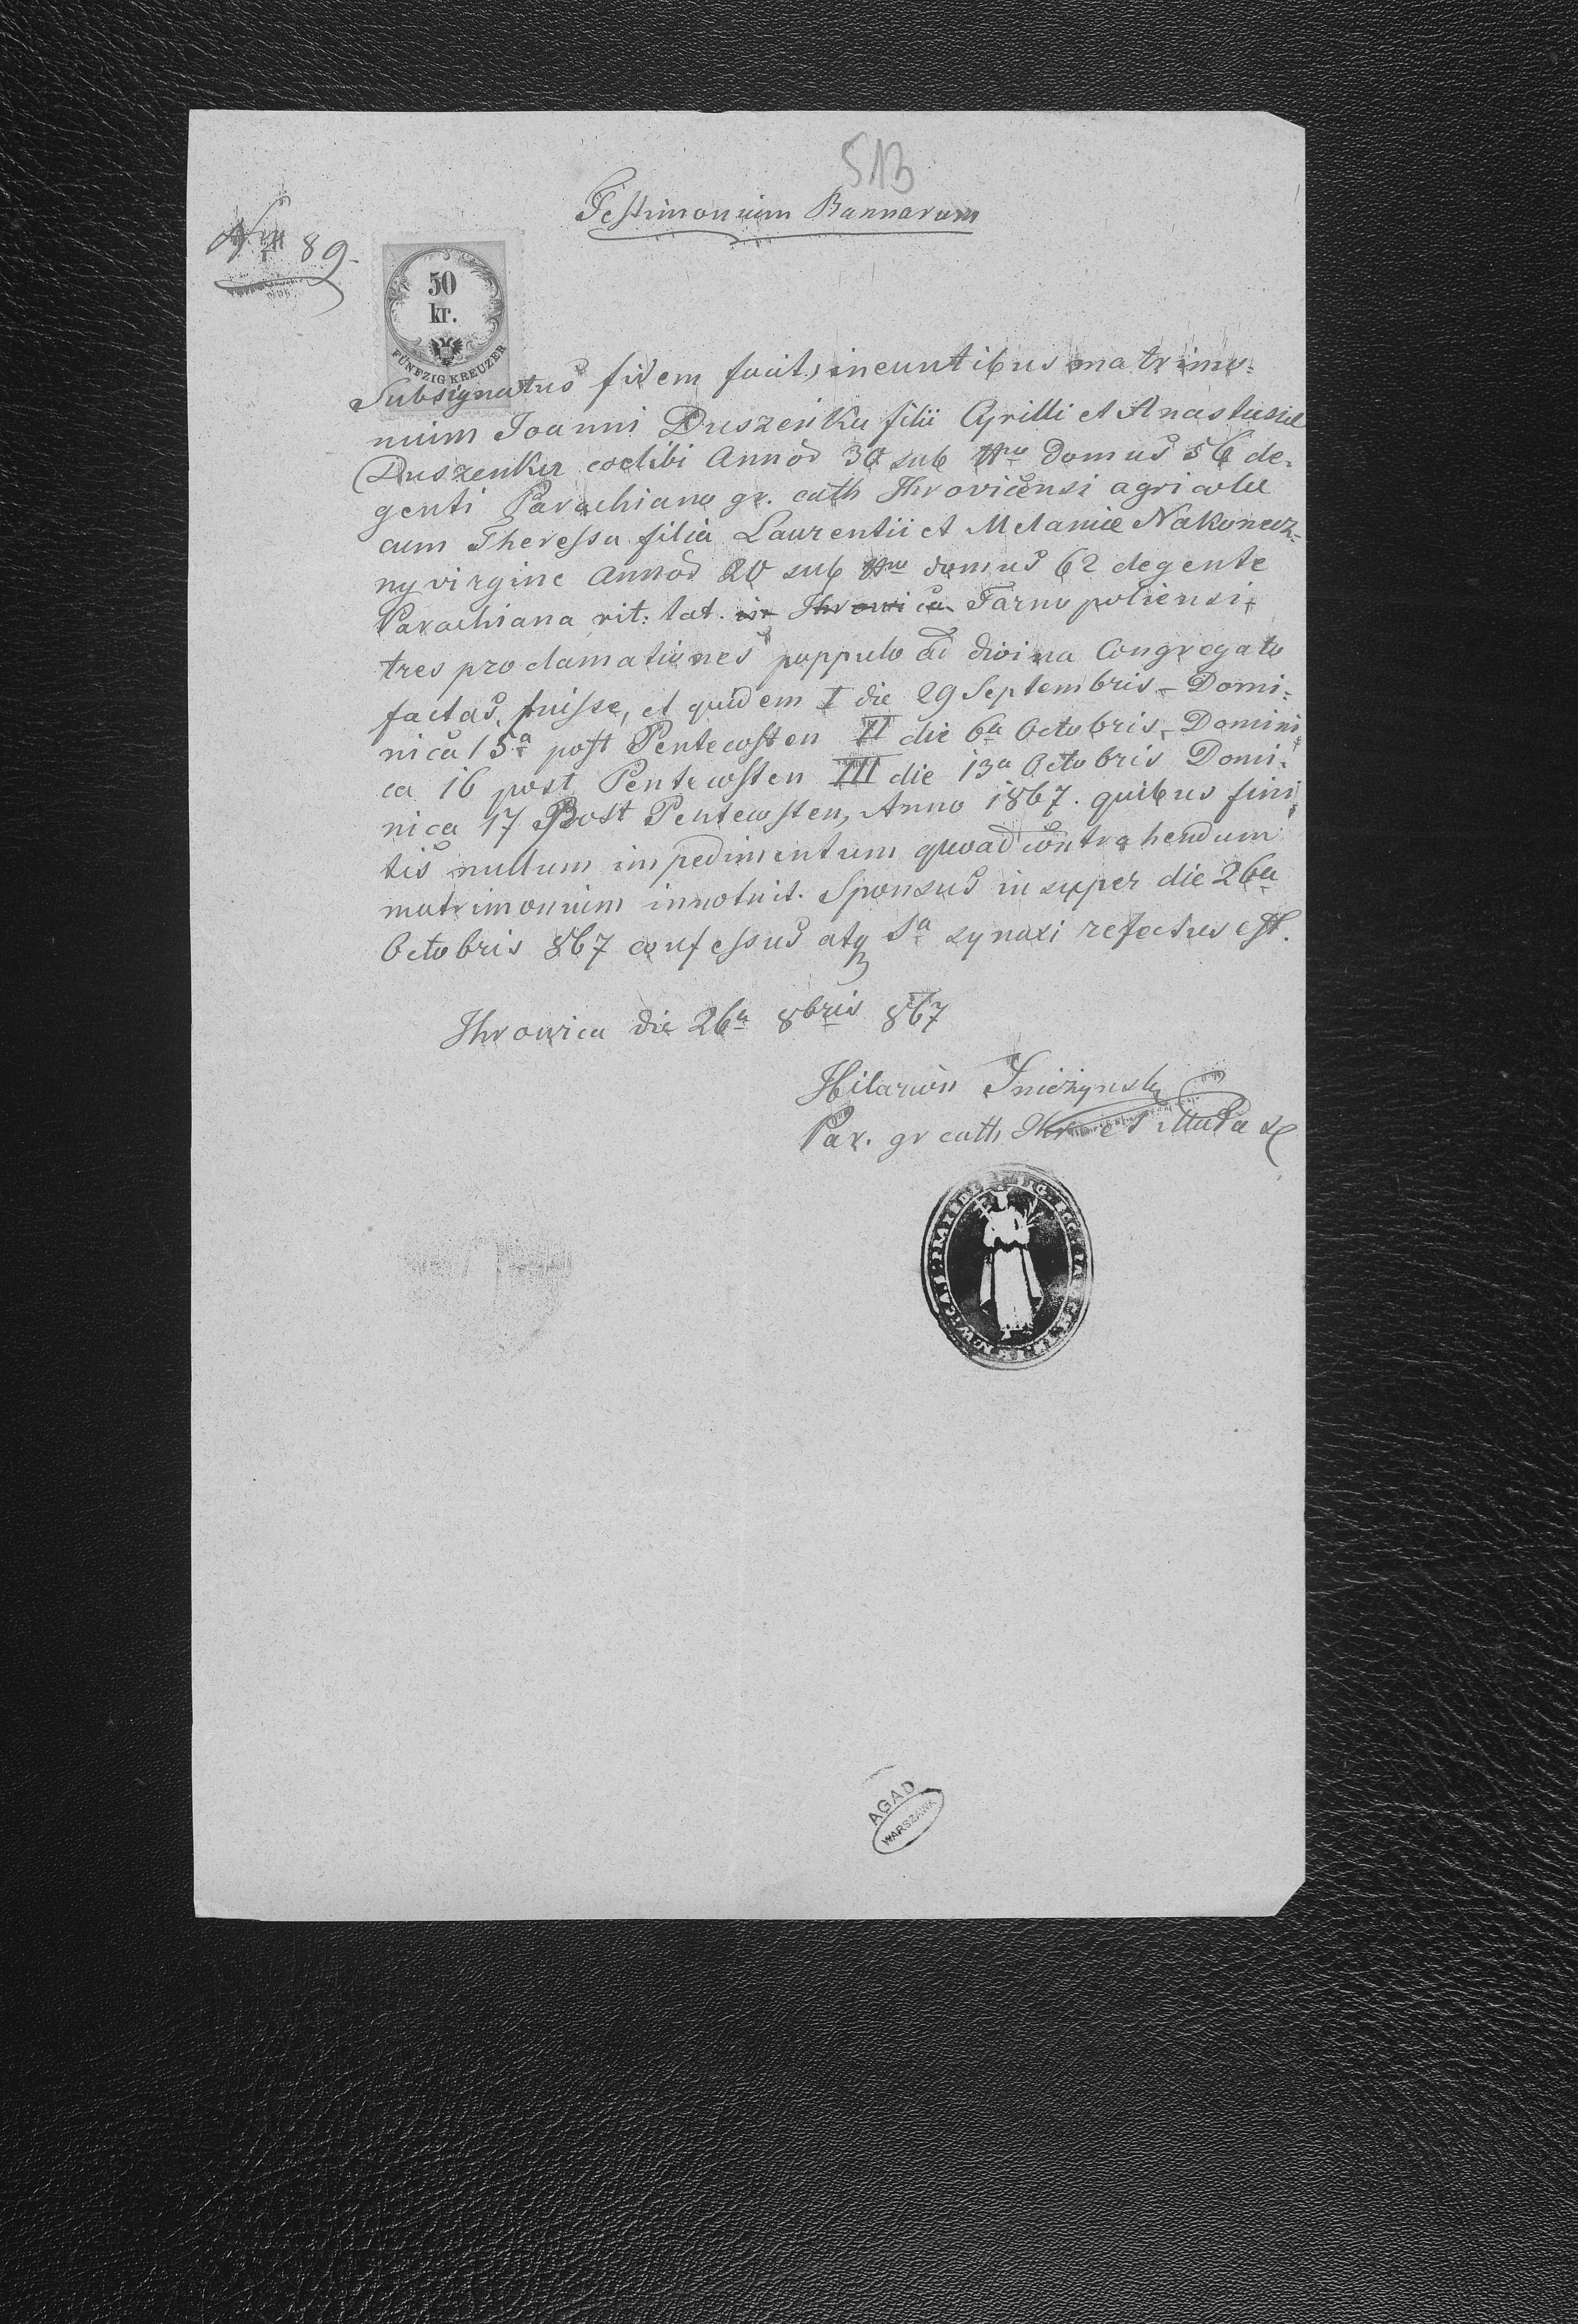 513
Testimonium Bannorum
Nr 89.
50
kr.
FÜNFZIG KREUZER
Subsignatus fidem facit, ineuntibus matrimo-
nium Joanni Duszeńka filii Cyrilli et Anastasiae
Duszenka coelibi Annor 30 sub Nro Domus 56 de-
genti Parochiano gr. cath Ihrovicensi agricolae
cum Theressa filia Laurentii et Melaniae Nakonecz-
ny virgine Annor 20 sub Nro domus 62 degente
Parochiana rit: lat. in Ihrowica Tarnopoliensi-
tres proclamationes poppulo ad divina Congregato
factas, fuisse, et quidem I die 29 Septembris - Domi-
nica 15a post Pentecosten II die 6a Octobris - Domini-
ca 16 post Pentecosten III die 13a Octobris Domi-
nica 17 Post Pentecosten, Anno 1867. quibus fini-
tis nullum impedimentum quoad contrahendum
matrimonium innotuit. Sponsus insuper die 26a
Octobris 867 confessus atq Sa synaxi refectus est.
Ihrowica die 26a 8bris 867
Hilarion
Par. gr cath
AGAD
WARSZAWA